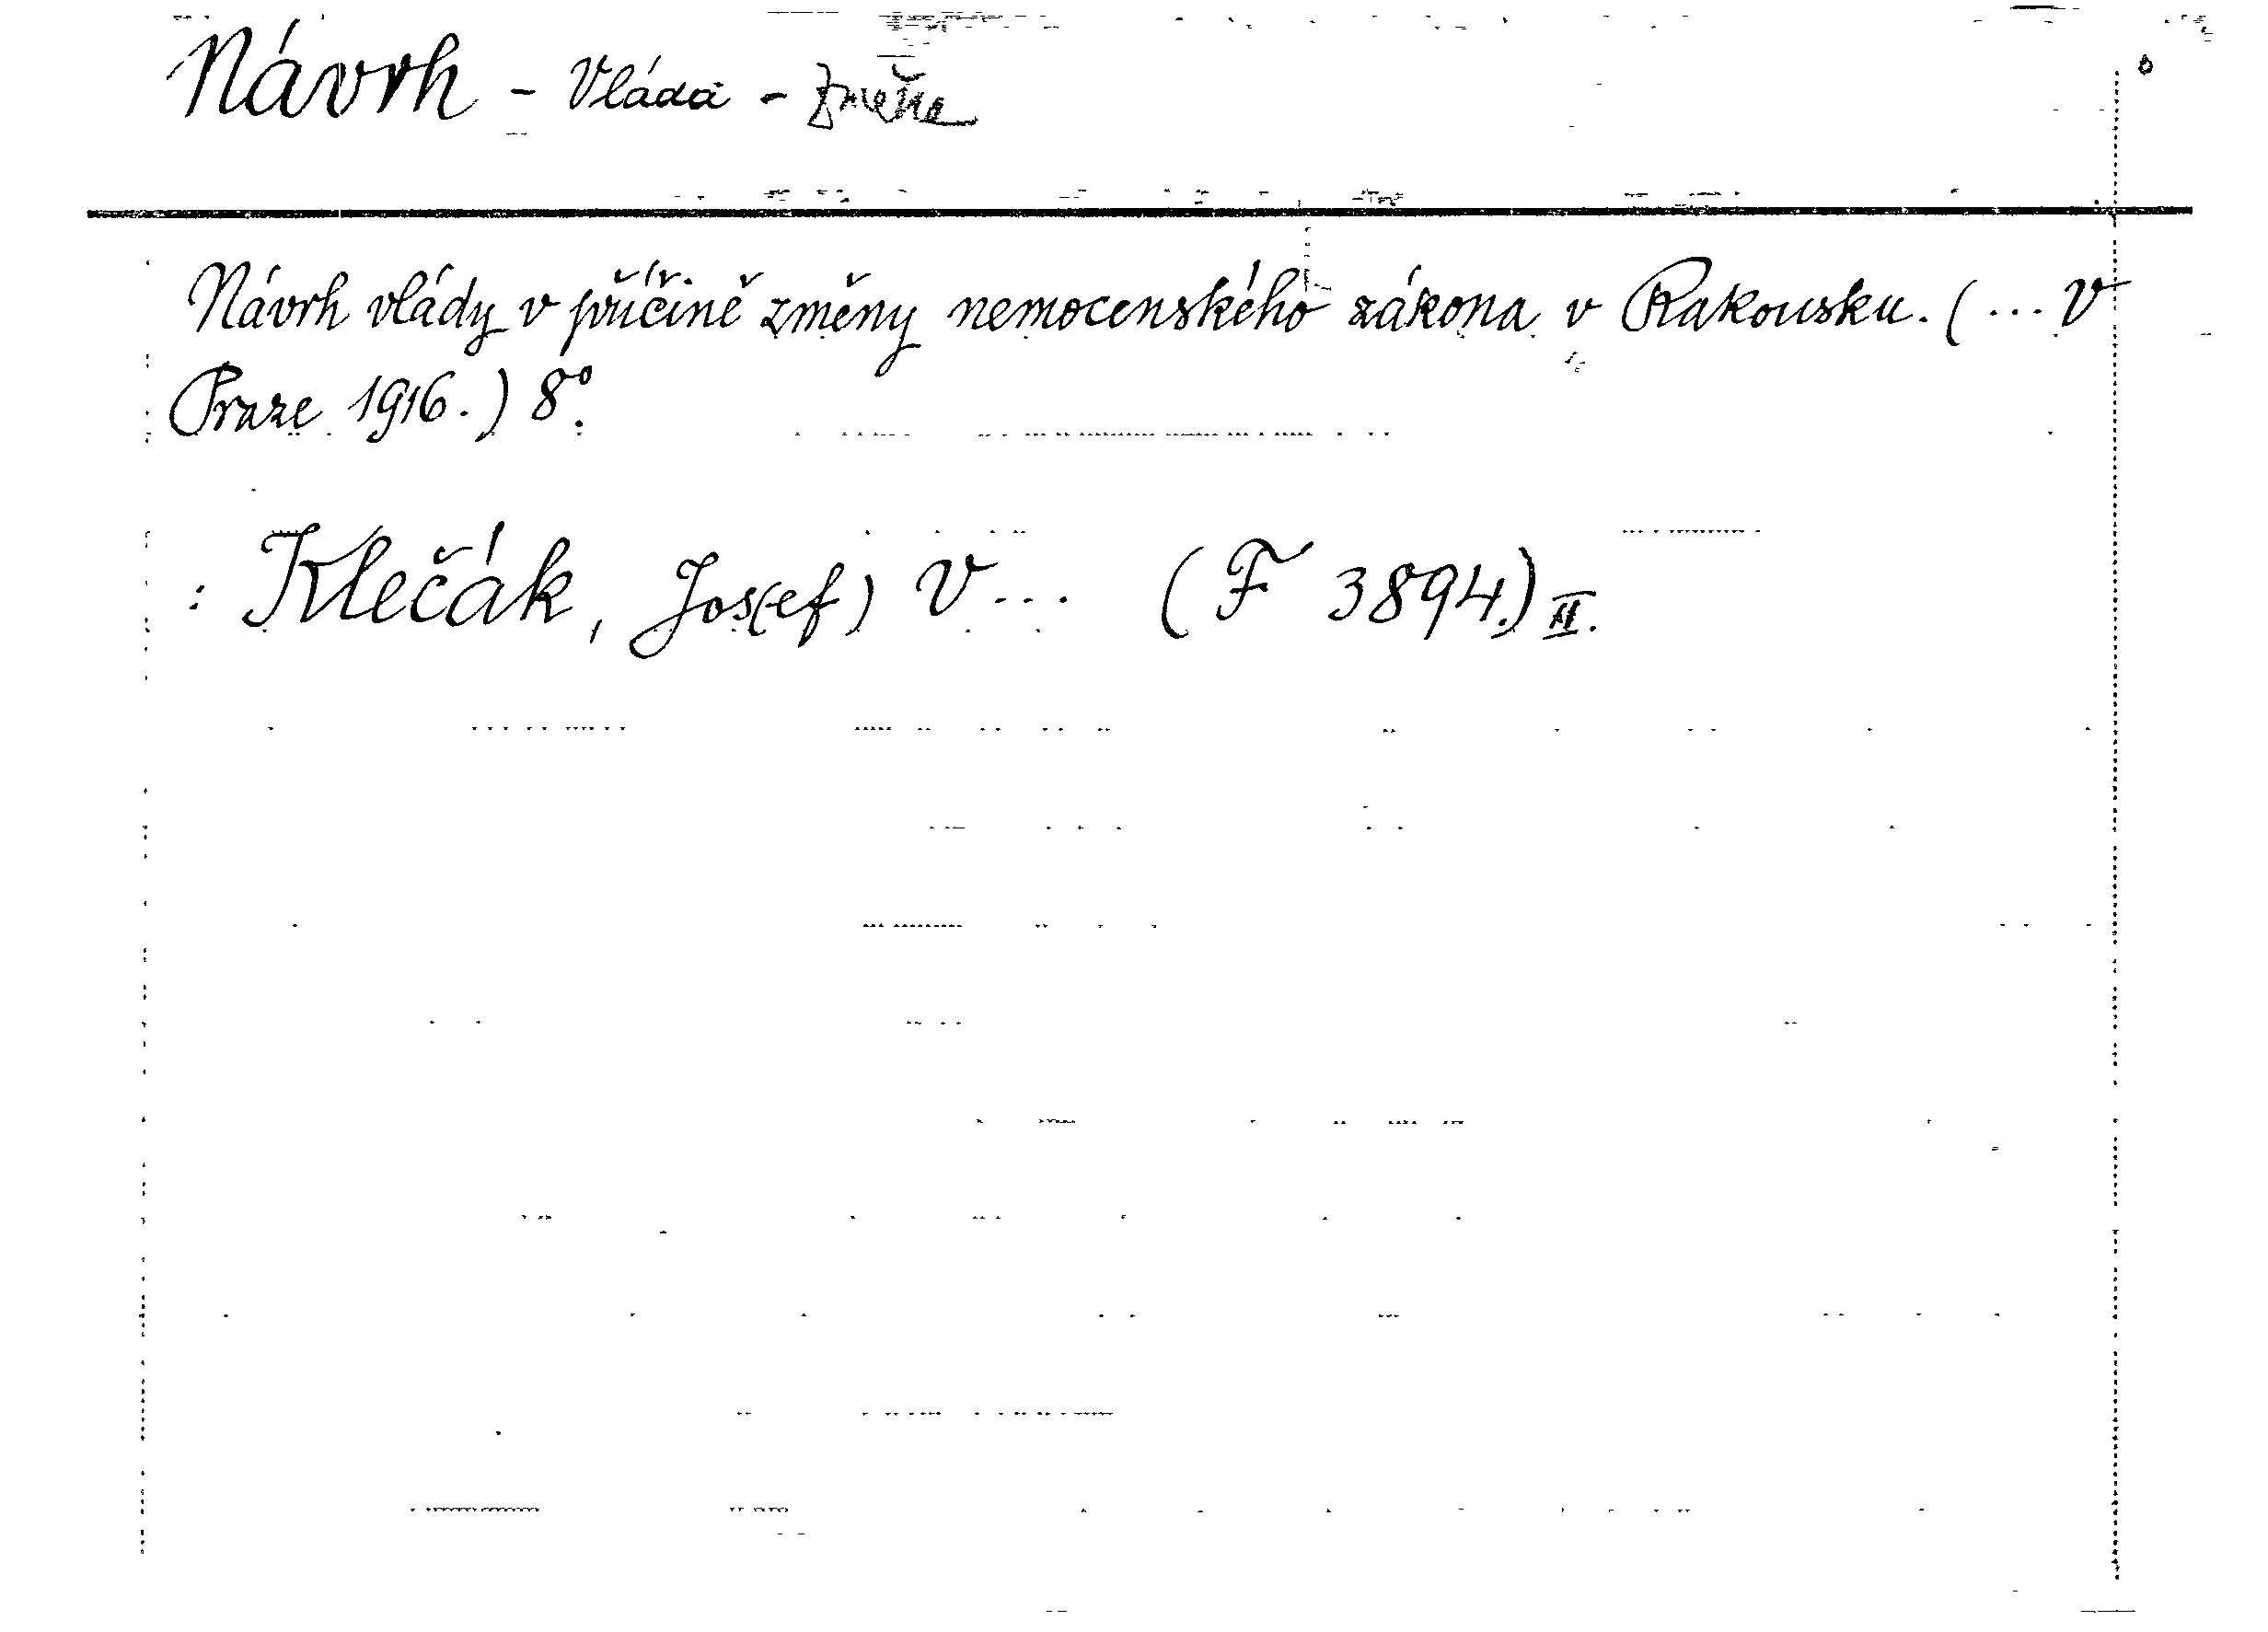 Návrh - Vláda - Změna
Návrh vlády v příčině změny nemocenského zákona v Rakousku. (... V
Praze 1916.) 8°.
: Klečák, Jos(ef) V... (F 3894.) II.